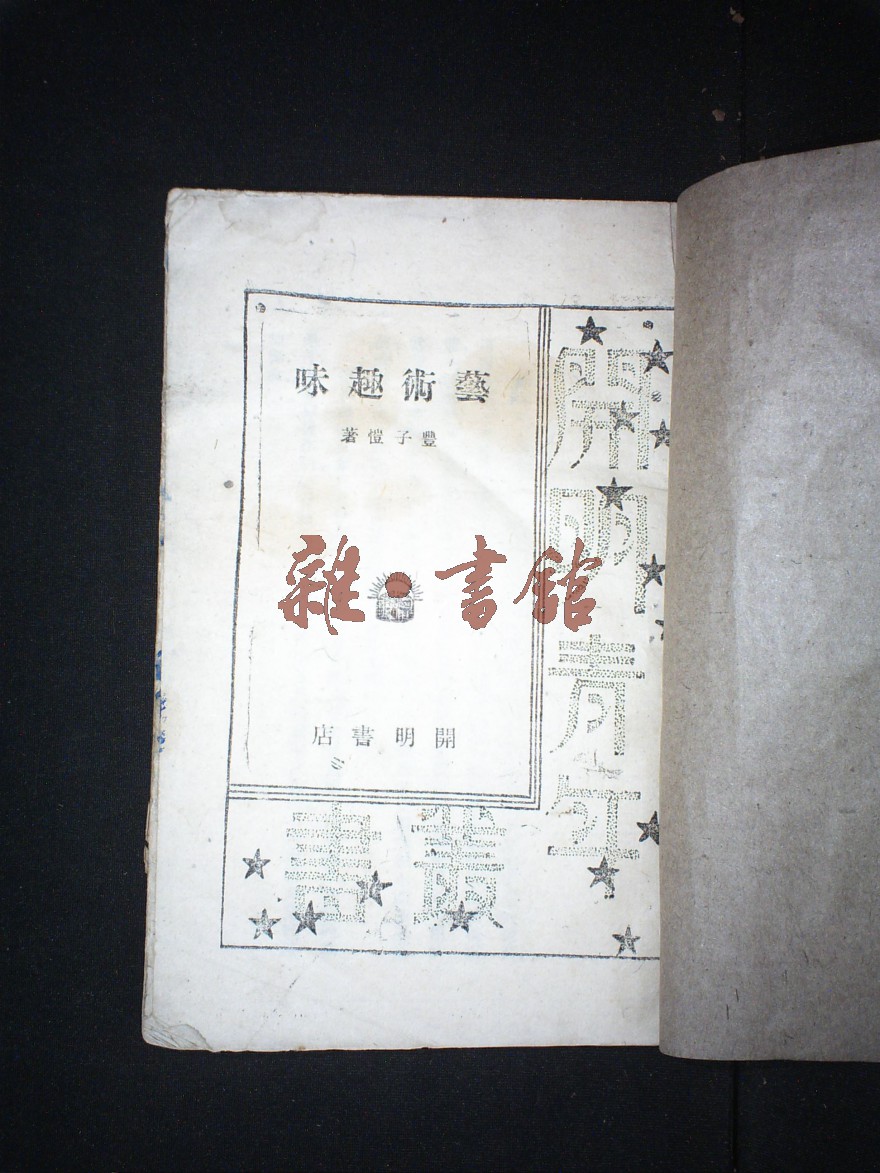 藝術趣味
豐子愷著
雜•書館
開明書店
開明青年
叢書